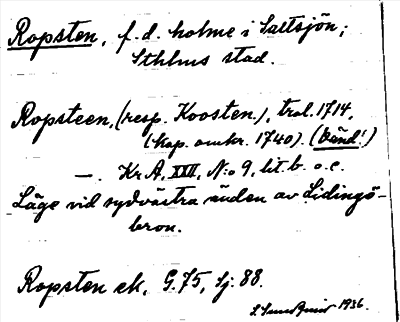 Ropsten, f. d. holme i Saltsjön;
Sthlms stad.
Ropsteen, (resp. Koosten), trol. 1714,
(kop. omkr. 1740). (Vänd!)
—. Kr A, XXII, N:o 9, lit. b. o. c.
Läge vid sydvästra änden av Lidingö-
bron.
Ropsten ek, G. 75, Sj: 88.
1936.